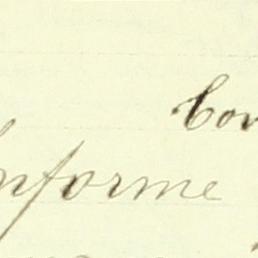 Con
Informe